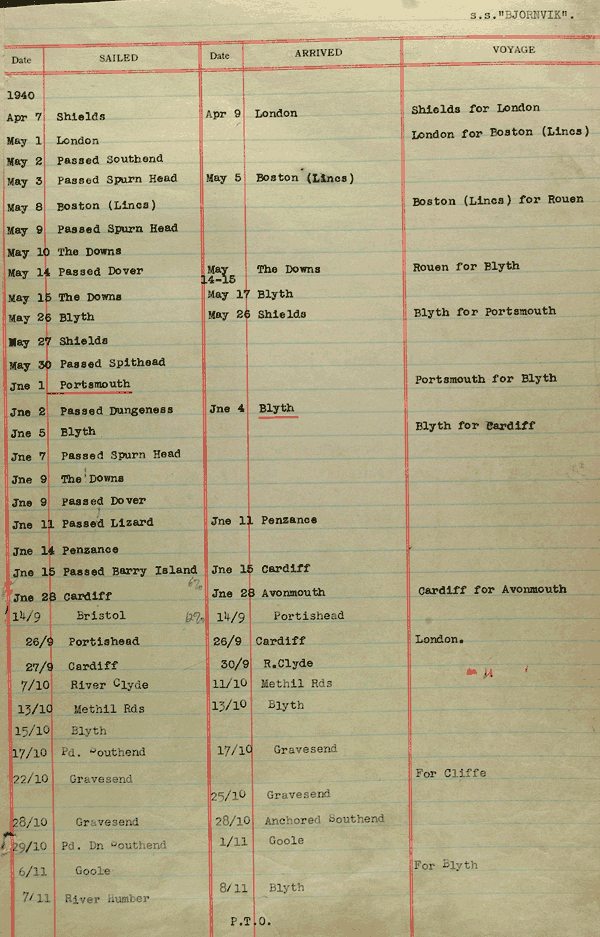 s.s."BJORNVIK".
Date SAILED Date ARRIVED VOYAGE
1940
Apr 7 Shields Apr 9 London Shields for London
May 1 London London for Boston (Lincs)
May 2 Passed Southend
May 3 Passed Spurn Head May 5 Boston (Lincs)
May 8 Boston (Lincs) Boston (Lincs) for Rouen
May 9 Passed Spurn Head
May 10 The Downs
May 14 Passed Dover May 14-15 The Downs Rouen for Blyth
May 15 The Downs May 17 Blyth
May 26 Blyth May 26 Shields Blyth for Portsmouth
May 27 Shields
May 30 Passed Spithead
Jne 1 Portsmouth Portsmouth for Blyth
Jne 2 Passed Dungeness Jne 4 Blyth
Jne 5 Blyth Blyth for Cardiff
Jne 7 Passed Spurn Head
Jne 9 The Downs
Jne 9 Passed Dover
Jne 11 Passed Lizard Jne 11 Penzance
Jne 14 Penzance
Jne 15 Passed Barry Island Jne 15 Cardiff
Jne 28 Cardiff Jne 28 Avonmouth Cardiff for Avonmouth
14/9 Bristol 14/9 Portishead
26/9 Portishead 26/9 Cardiff London.
27/9 Cardiff 30/9 R.Clyde
7/10 River Clyde 11/10 Methil Rds
13/10 Methil Rds 13/10 Blyth
15/10 Blyth
17/10 Pd. Southend 17/10 Gravesend
22/10 Gravesend For Cliffe
25/10 Gravesend
28/10 Gravesend 28/10 Anchored Southend
29/10 Pd. Dn Southend 1/11 Goole
6/11 Goole For Blyth
7/11 River Humber 8/11 Blyth
P.T.O.